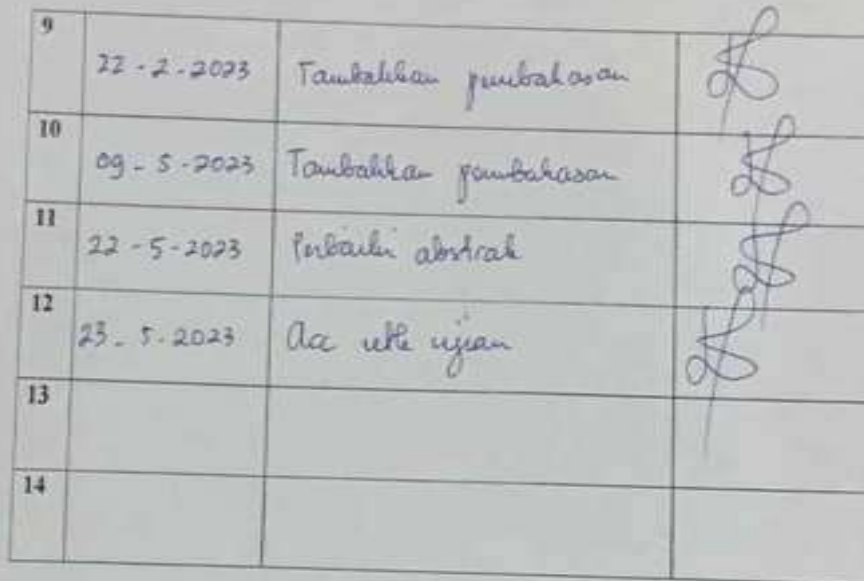 9 22-2-2023 Tambahkan pembahasan
10 09-5-2023 Tambahkan pembahasan
11 22-5-2023 Perbaiki abstrak
12 23-5-2023 Acc utk ujian
13
14